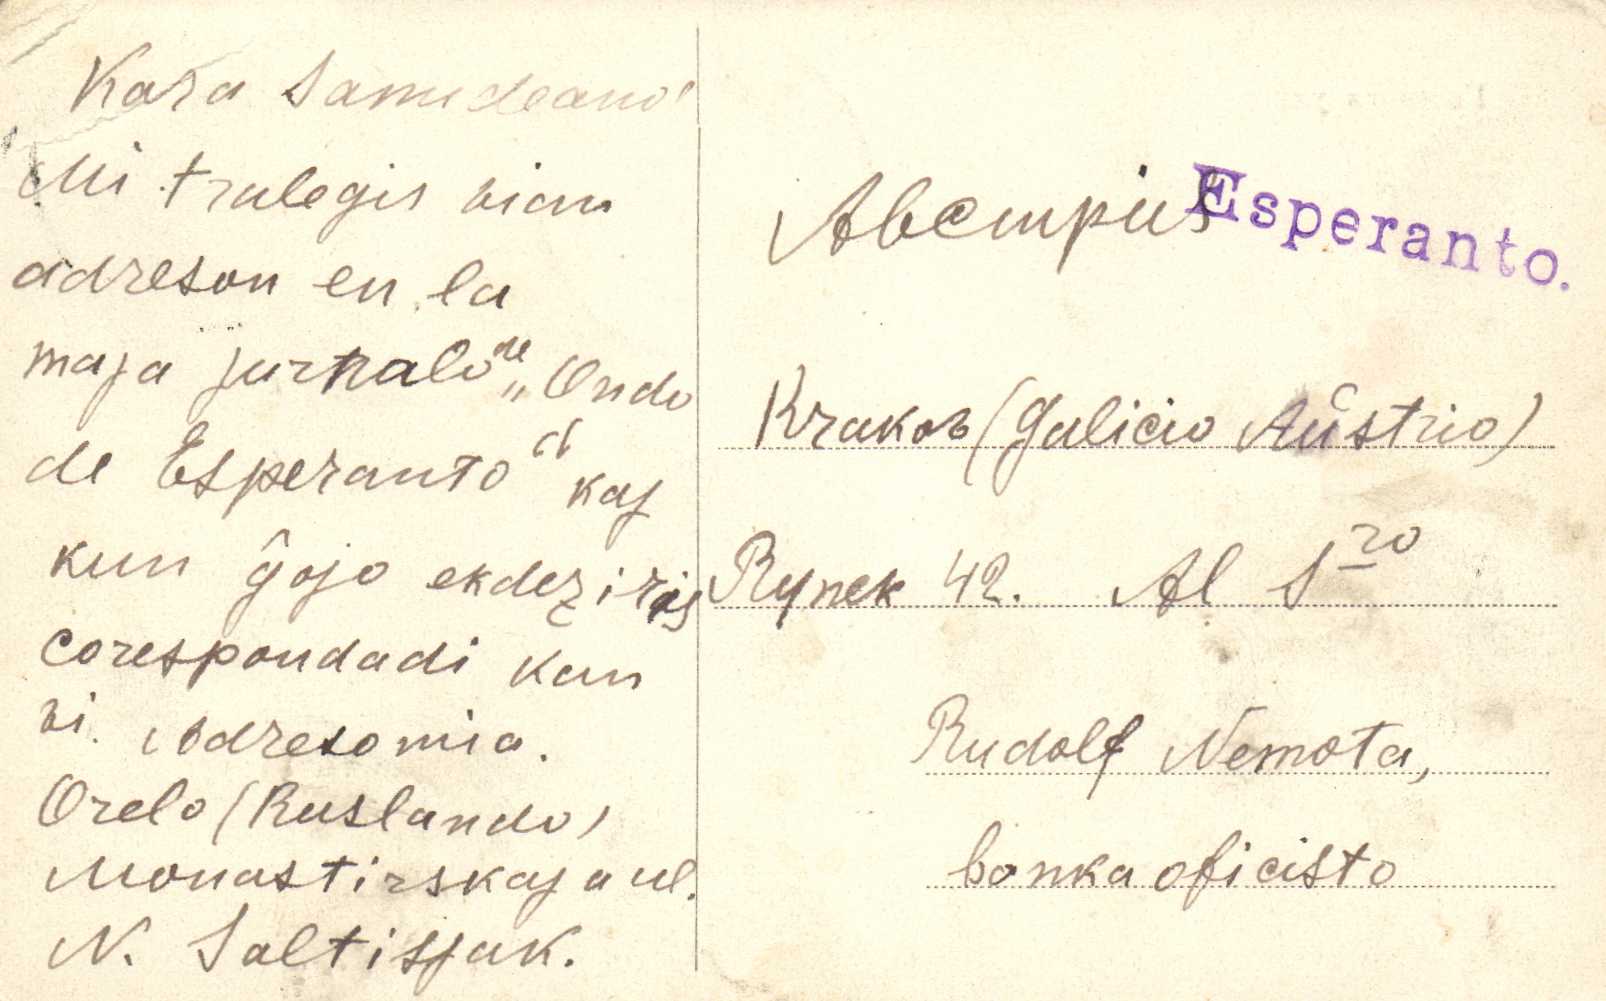 Kara Samideano
Mi tralegis vian
adreson en la
maja jurnalo de „Ondo
de Esperanto" kaj
kun ĝojo ekdeziris
corespondadi kun
vi. Adreso mia.
Orelo (Ruslando)
Monastirskaja ul.
N. Saltisjak.
Esperanto.
Krakov (Galicio Aŭstrio)
Rynek 42. Al Sro
Rudolf Nemota,
banka oficisto